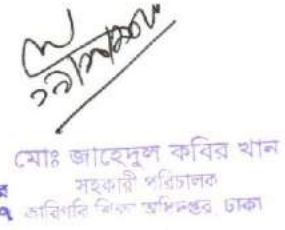 মোঃ জাহেদুল কবির খান
সহকারী পরিচালক
কারিগরি শিক্ষা অধিদপ্তর ঢাকা